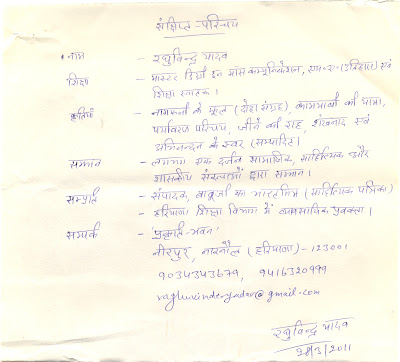 संक्षिप्त-परिचय
नाम - रघुविन्द्र यादव
शिक्षा - मास्टर डिग्री इन मास कम्युनिकेशन, एम॰ए॰ (इतिहास) एवं
शिक्षा स्नातक।
कृतियाँ - नागफनी के फूल (दोहा संग्रह), कामयाबी की यात्रा,
पर्यावरण परिचय, जीने की राह, शंखनाद एवं
अभिनन्दन के स्वर (सम्पादित)।
सम्मान - लगभग एक दर्जन सामाजिक, साहित्यिक और
शासकीय संस्थाओं द्वारा सम्मान।
सम्प्रति - संपादक, बाबूजी का भारतमित्र (साहित्यिक पत्रिका)
- हरियाणा शिक्षा विभाग में व्यावसायिक प्रवक्ता।
सम्पर्क - 'प्रकृति-भवन'
नीरपुर, नारनौल (हरियाणा)-123001
9034343679, 9416320999
raghuvinderyadav@gmail.com
रघुविन्द्र यादव
28/3/2011